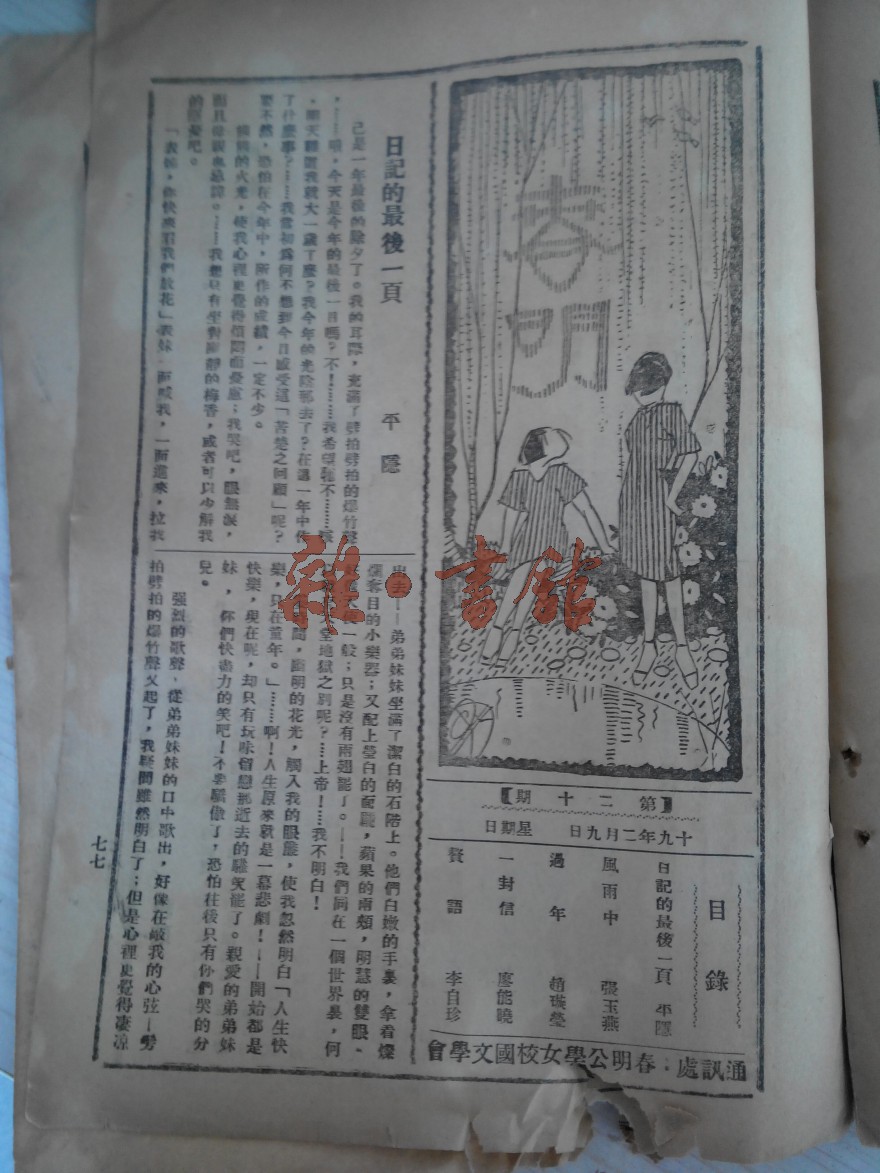 春明
【第二十期】
十九年二月九日 星期日
目錄
日記的最後一頁 平隱
風雨中 張玉燕
過年 趙璞瑩
一封信 廖能曉
贅語 李自珍
通訊處：春明公學女校國文學會
日記的最後一頁
平隱
己是一年最後的除夕了。我的耳際，充滿了劈拍劈拍的爆竹聲
，今天是今年的最後一日嗎？不！……我希望牠不……
明天牠我就大一歲了麼？我今年的光陰那去了？在這一年中作
了什麼事？……我當初為何不想到今日感受這「苦楚之回顧」呢？
要不然，恐怕在今年中，所作的成績，一定不少。
的火光，使我心裡更覺得煩悶而憂慮；我哭吧，眼無淚，
而且母親也忌諱。——我想只有坐對幽靜的梅香，或者可以少解我
的憂愁吧。
「表姊，你快來看我們放花」表妹一面喊我，一面進來，拉我
出去——弟弟妹妹坐滿了潔白的石階上。他們白嫩的手裏，拿着燦
爛奪目的小樂器；又配上瑩白的面龐，蘋果的兩頰，明慧的雙眼、
一般；只是沒有兩翅罷了。——我們同在一個世界裏，何
堂地獄之別呢？……上帝！……我不明白！
間，鮮明的花光，觸入我的眼簾，使我忽然明白「人生快
樂，只在童年。」……啊！人生原來就是一幕悲劇！——開始都是
快樂，現在呢，却只有玩味留戀那逝去的歡笑罷了。親愛的弟弟妹
妹，你們快盡力的笑吧！不要驕傲了，恐怕往後只有你們哭的分
兒。
強烈的歌聲、從弟弟妹妹的口中歌出，好像在敲我的心弦——劈
拍劈拍的爆竹聲又起了，我雖然明白了；但是心裡更覺得凄凉
七七
雜·書館